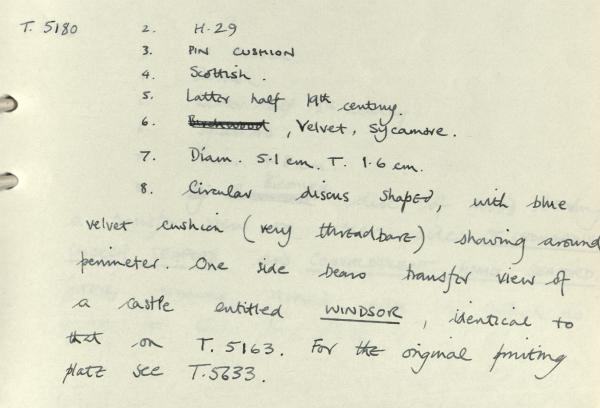 T. 5180 2. H.29
3. PIN CUSHION
4. Scottish.
5. Latter half 19th century.
6. Birchwood, Velvet, Sycamore.
7. Diam. 5.1 cm. T. 1.6 cm.
8. Circular discus shaped, with blue
velvet cushion (very threadbare) showing around
perimeter. One side bears transfer view of
a castle entitled WINDSOR, identical to
that on T. 5163. For the original printing
plate see T.5633.